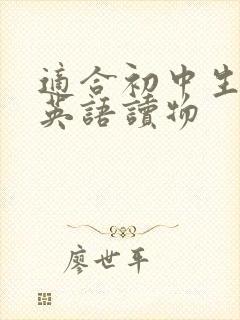 適合初中生
英語讀物
廖世平